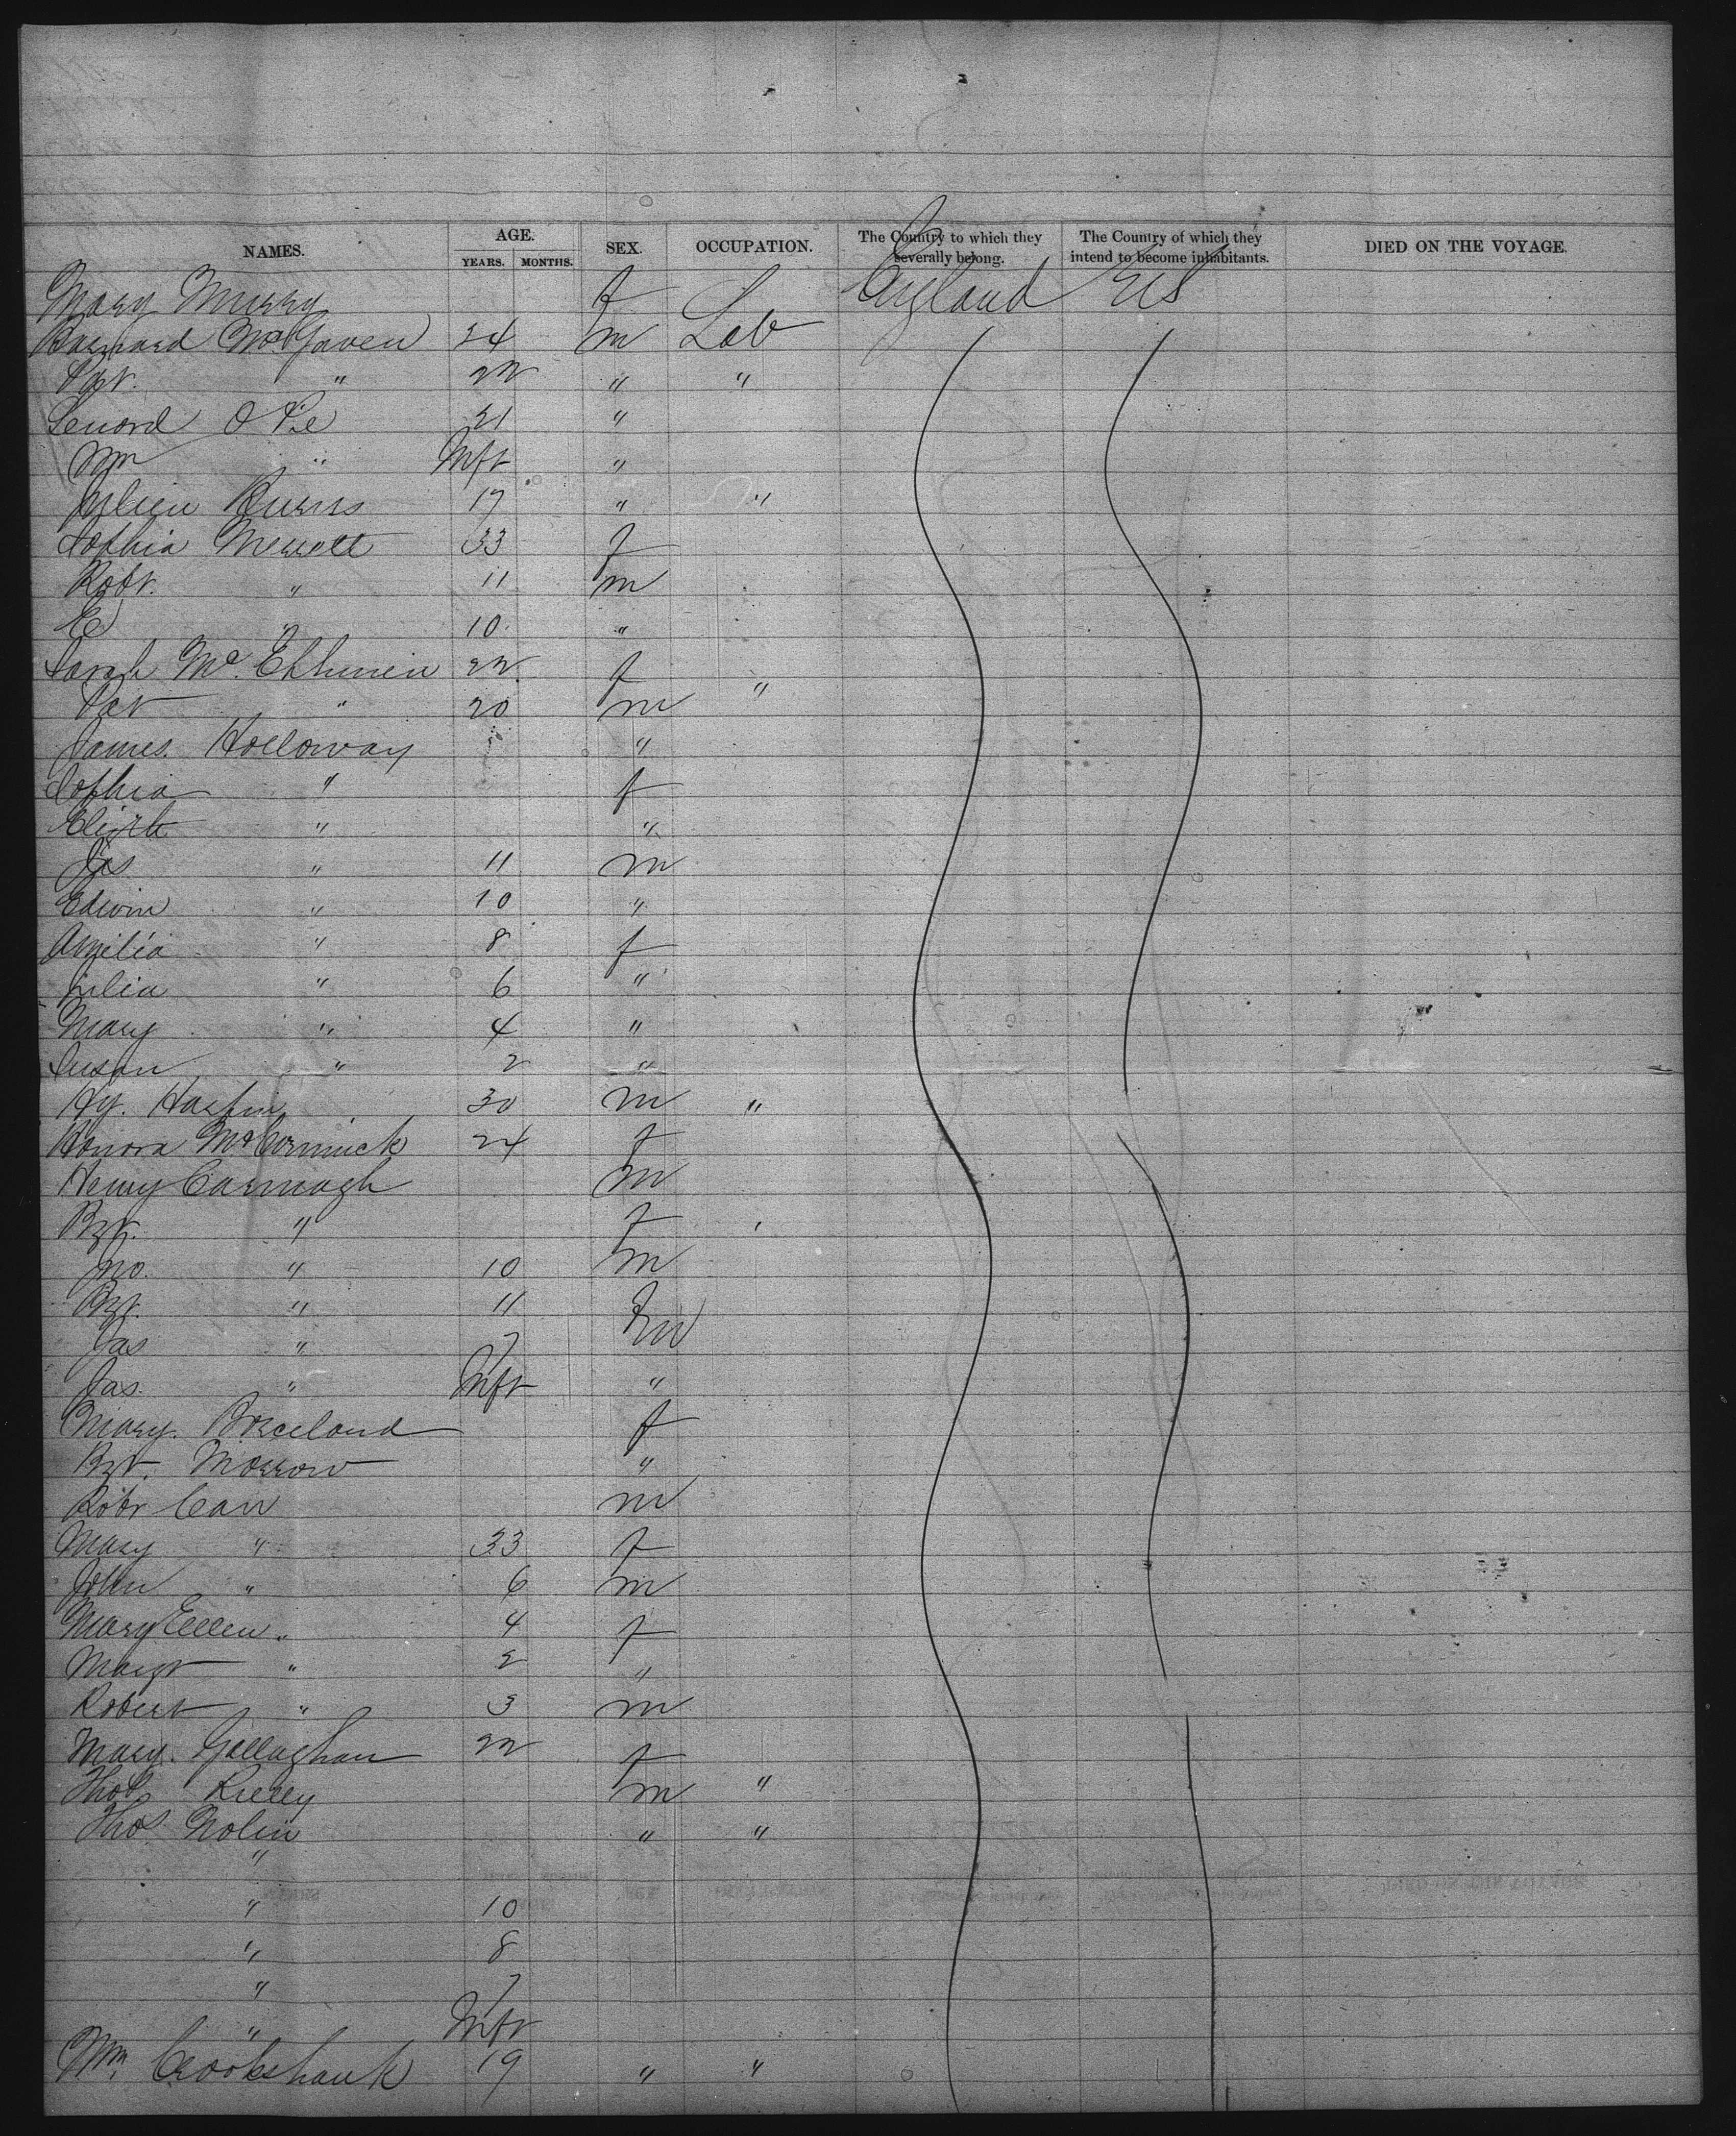 NAMES. AGE. YEARS. MONTHS. SEX. OCCUPATION. The Country to which they severally belong. The Country of which they intend to become inhabitants. DIED ON THE VOYAGE.
Mary Murry f England US
Barnard McGaven 24 m Lab
Pat. " 22 " "
Lenord 21 "
Wm " Inft "
Julien Burns 17 " "
Sophia Merrett 33 f
Robt. " 11 m
E " 10 "
Sarah Mc 22 f
Pat " 20 m "
James Holloway "
Sophia " f
Elizth " "
Jas " 11 m
Edwin " 10 "
Amilia " 8 f
Julia " 6 "
Mary " 4 "
Susan " 2 "
Hy. 30 m "
Honora McCormick 24 f
Henry Carmagh m
Bgt. " f
Jno. " 10 m
Bgt. " 11 f
Jas " 7 m
Jas. " Inft "
Mary. Breeland f
Bgt. Morrow "
Robt Carr m
Mary " 33 f
John " 6 m
Mary Ellen " 4 f
Margt " 2 "
Robert " 3 m
Mary. Gallaghan 22 f
Thos m "
Thos Nolin " "
"
" 10
" 8
" 7
" Inft
Wm. Crookshank 19 " "